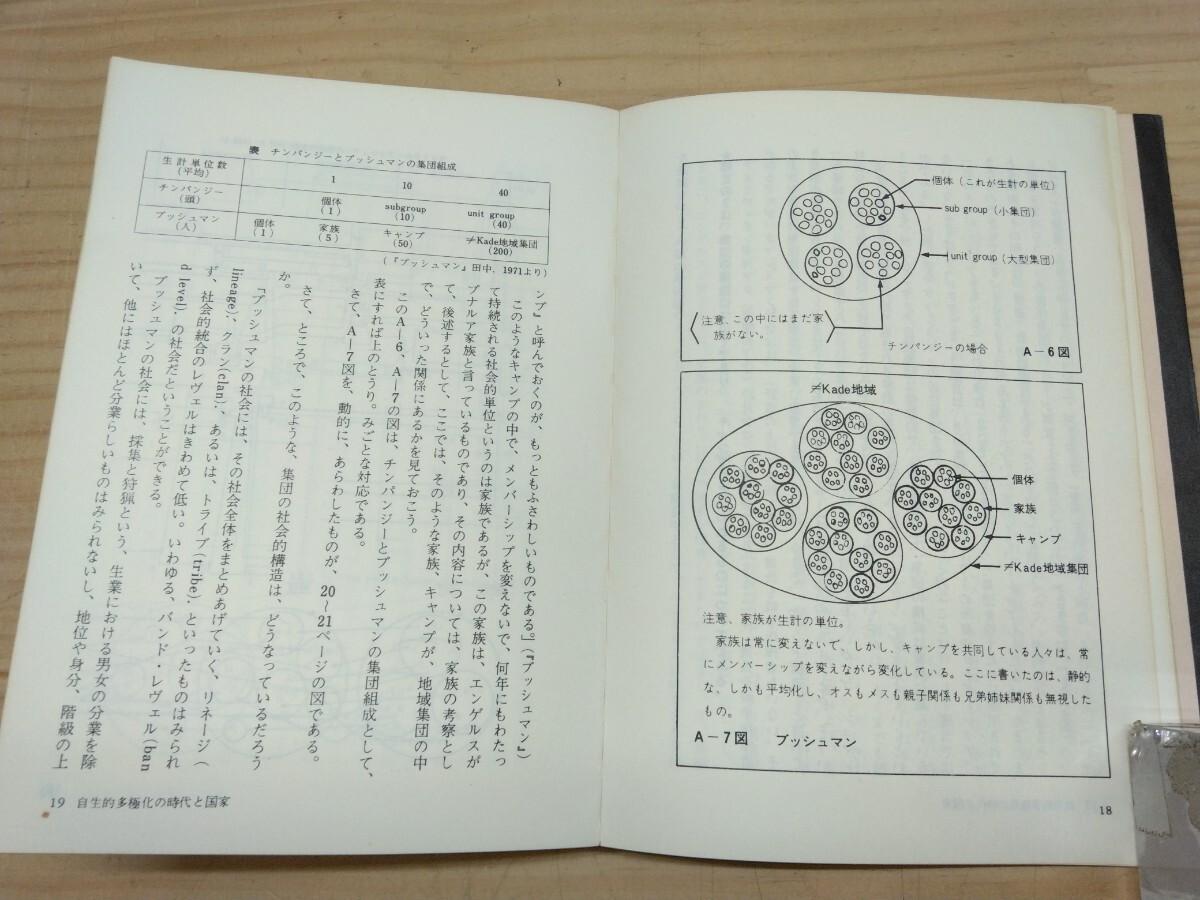 個体(これが生計の単位)
sub group(小集団)
unit group(大型集団)
注意、この中にはまだ家
族がない。
チンパンジーの場合
A-6図
≠Kade地域
個体
家族
キャンプ
≠Kade地域集団
注意、家族が生計の単位。
家族は常に変えないで、しかし、キャンプを共同している人々は、常
にメンバーシップを変えながら変化している。ここに書いたのは、静的
な、しかも平均化し、オスもメスも親子関係も兄弟姉妹関係も無視した
もの。
A-7図 ブッシュマン
18
表 チンパンジーとブッシュマンの集団組成
生計単位数
(平均)
1 10 40
チンパンジー
(頭)
個体
(1)
subgroup
(10)
unit group
(40)
ブッシュマン
(人)
個体
(1)
家族
(5)
キャンプ
(50)
≠Kade地域集団
(200)
(『ブッシュマン』田中, 1971より)
ンプ』と呼んでおくのが、もっともふさわしいものである。」(『ブッシュマン』)
このようなキャンプの中で、メンバーシップを変えないで、何年にもわたっ
て持続される社会的単位というのは家族であるが、この家族は、エンゲルスが
プナルア家族と言っているものであり、その内容については、家族の考察とし
て、後述するとして、ここでは、そのような家族、キャンプが、地域集団の中
で、どういった関係にあるかを見ておこう。
このA-6、A-7の図は、チンパンジーとブッシュマンの集団組成として、
表にすれば上のとうり。みごとな対応である。
さて、A-7図を、動的に、あらわしたものが、20~21ページの図である。
さて、ところで、このような、集団の社会的構造は、どうなっているだろう
か。
「ブッシュマンの社会には、その社会全体をまとめあげていく、リネージ(
lineage)、クラン(clan)、あるいは、トライブ(tribe)、といったものはみられ
ず、社会的統合のレヴェルはきわめて低い。いわゆる、バンド・レヴェル(ban
d level)、の社会だということができる。
ブッシュマンの社会には、採集と狩猟という、生業における男女の分業を除
いて、他にはほとんど分業らしいものはみられないし、地位や身分、階級の上
19 自生的多極化の時代と国家